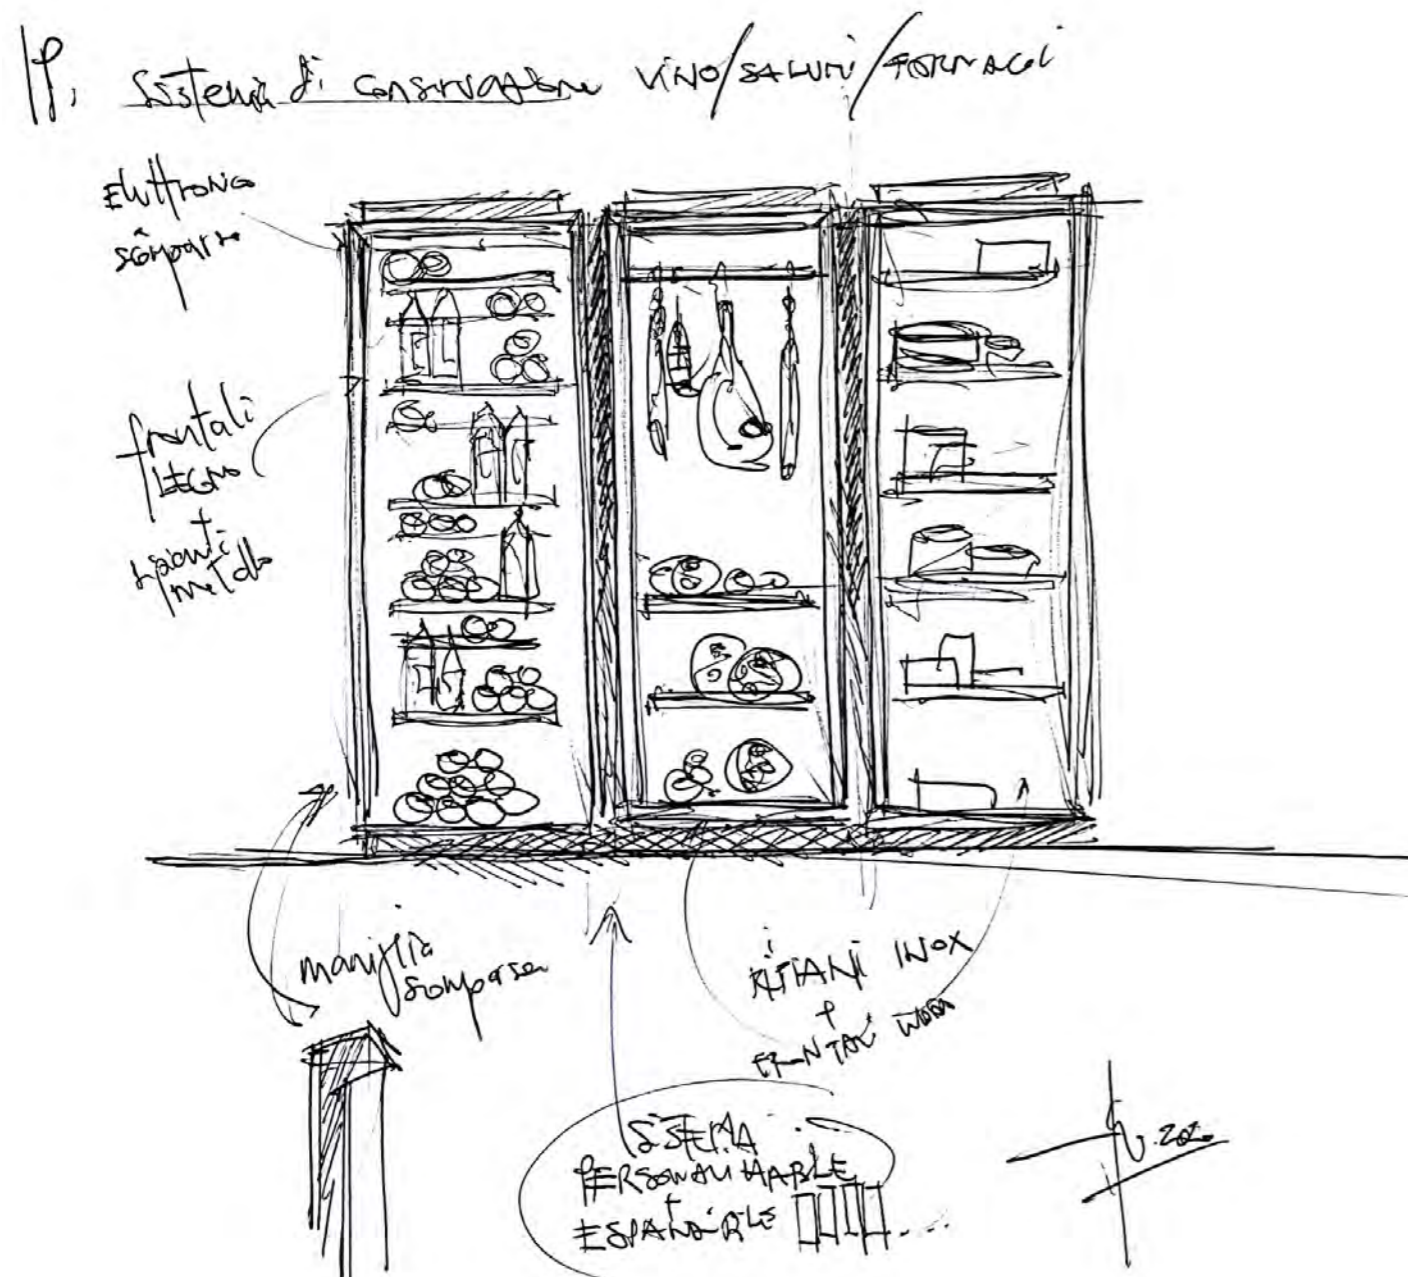 Sistema di conservazione vino/salumi/formaggi
Elettronica
scomparsa
frontali
LEGNO
+
metallo
maniglia
scomparsa
RIPIANI INOX
+
FRONTALI WOOD
SISTEMA
PERSONALIZZABLE
+
ESPANDIBLE